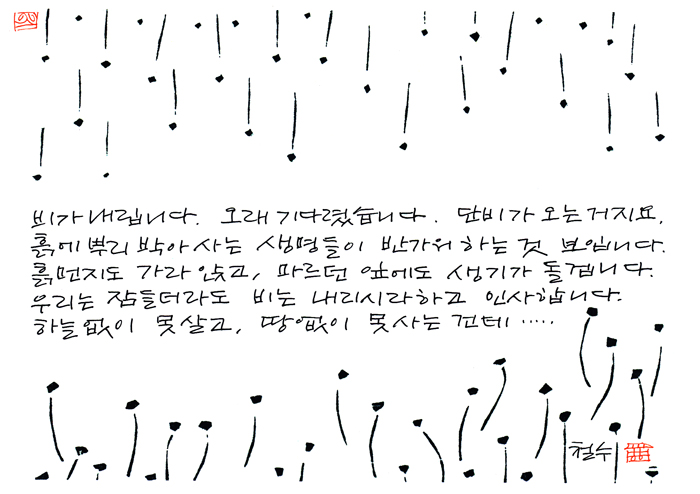 비가 내립니다. 오래 기다렸습니다. 단비가 오는거지요.
흙에 뿌리 박아 사는 생명들이 반가워 하는 것 보입니다.
흙먼지도 가라 앉고, 마르던 잎에도 생기가 돌겁니다.
우리는 잠들더라도 비는 내리시라하고 인사합니다.
하늘없이 못살고, 땅없이 못사는 건데 .....
철수